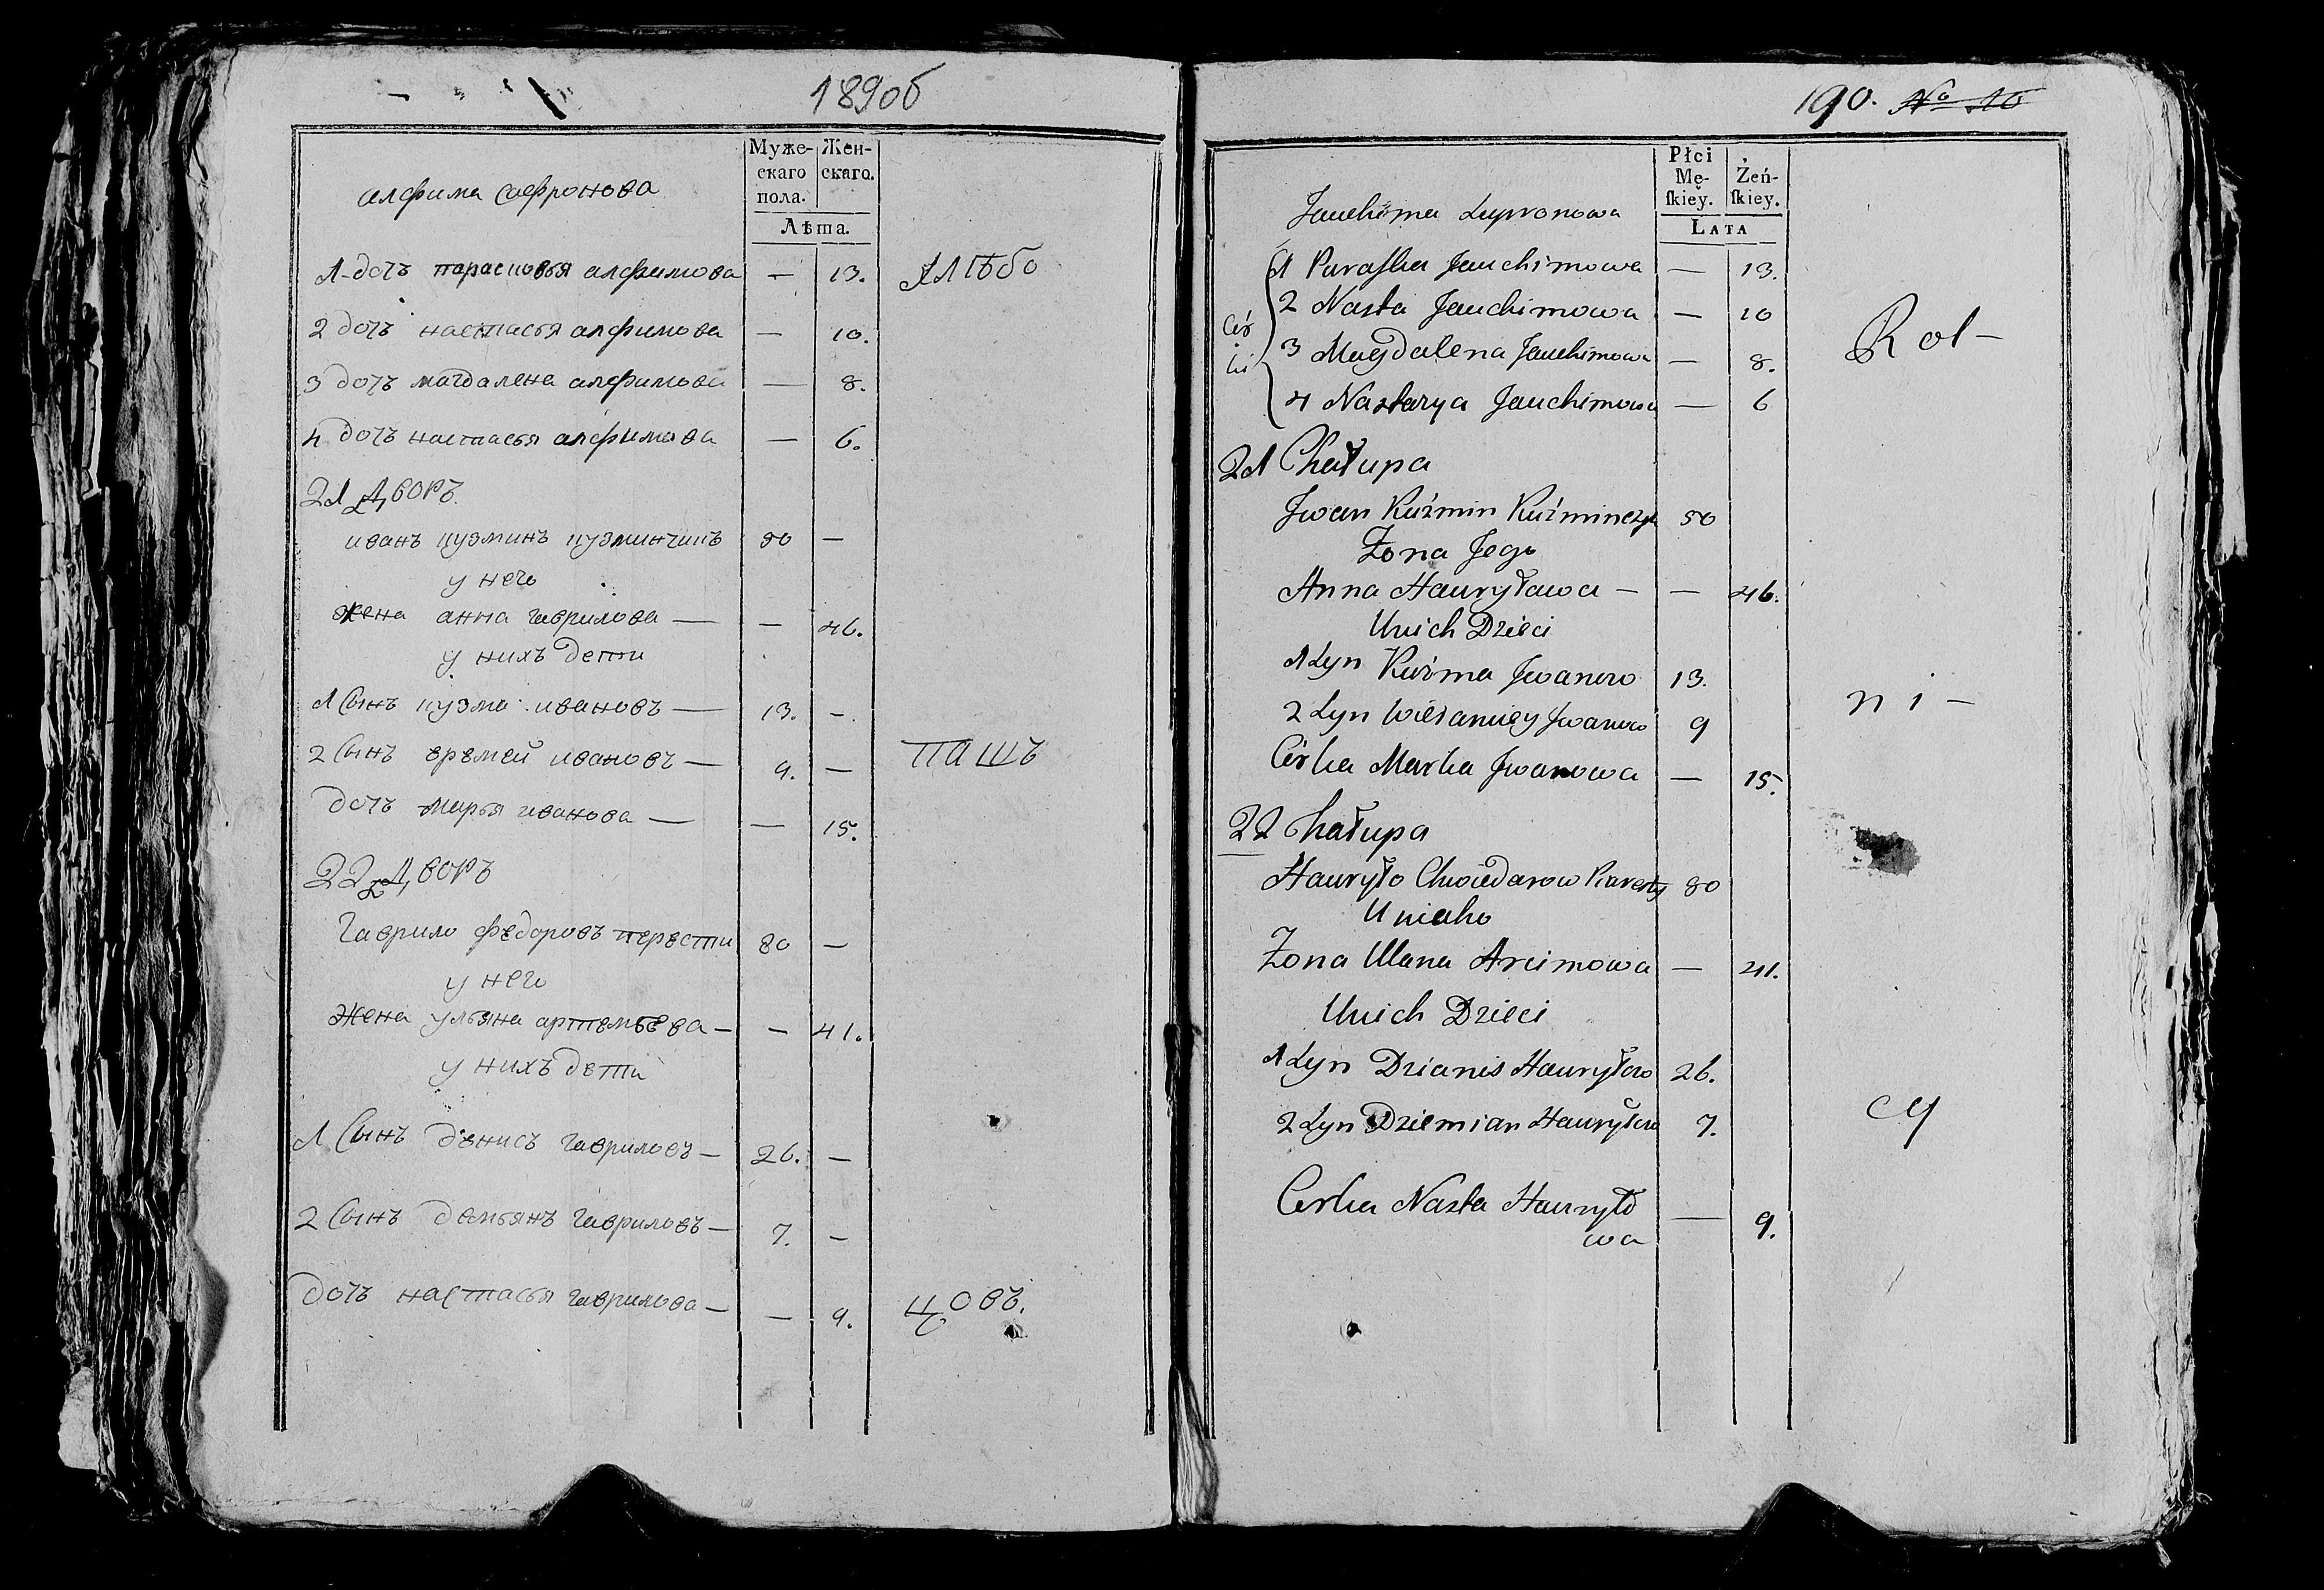 189об
Муже-
скаго
пола.
Жен-
скаго.
Лѣта.
алфима сафронова
1 дочъ парасковья алфимова — 13.
2 дочъ настасья алфимова — 10.
3 дочъ магдалена алфимова — 8.
4 дочъ настасья алфимова — 6.
хлѣбо
21 Дворъ
иванъ кузминъ кузминчикъ 50 —
у него
жена анна гаврилова — — 46.
у нихъ дети
1 Сынъ кузма ивановъ — 13. —
2 Сынъ еремей ивановъ — 9. —
пашъ
дочъ марья иванова — — 15.
22 Дворъ
гаврило федоровъ 80 —
у него
жена ульяна артемьева — — 41.
у нихъ дети
1 Сынъ денисъ гавриловъ — 26. —
2 Сынъ демьянъ гавриловъ — 7. —
дочъ настасья гаврилова — — 9.
цовъ.
190. No 10
Płci
Mę-
ſkiey.
Żeń-
ſkiey.
LATA
Jauchima
Cór
ki
1 Paraſka Jauchimowa — 13.
2 Nasta Jauchimowa — 10
3 Magdalena Jauchimowa — 8.
4 Nastazya Jauchimowa — 6
Rol-
21 Chałupa
Jwan Kuźmin Kuźminczyk 50
Żona Jego
Anna Hauryława — — 46.
Unich Dzieci
1 Syn Kuźma Jwanow 13.
2 Syn Jwanow 9
ni-
Córka Marka Jwanowa — 15.
22 Chałupa
Hauryło Chwiedarow 80
Uniaho
Żona Ulana Arcimowa — 41.
Unich Dzieci
1 Syn Dzianis Hauryłow 26.
2 Syn Dziemian Hauryłow 7.
cy
Corka Nasta Hauryło
wa — 9.